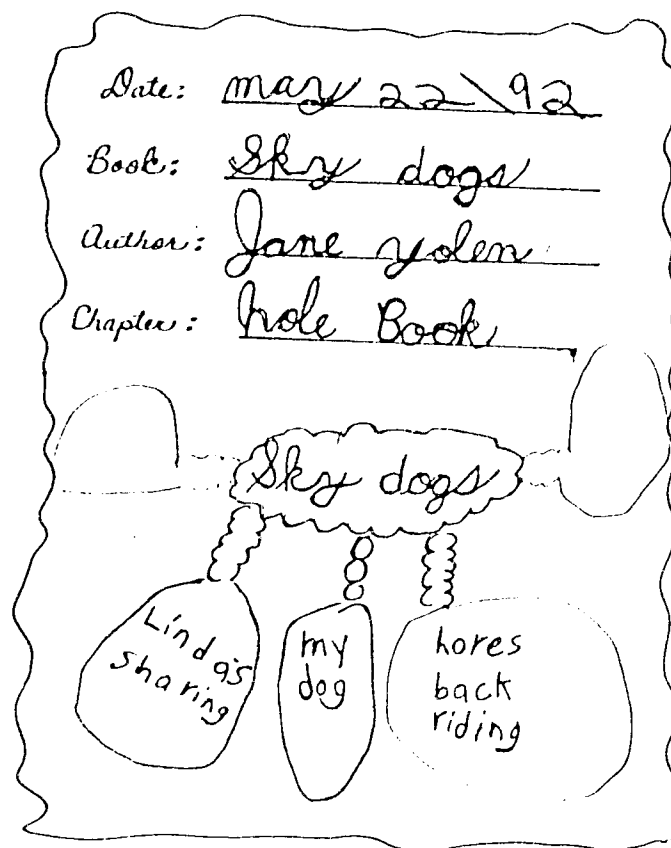 Date: may 22\92
Book: Sky dogs
Author: Jane yolen
Chapter: hole Book
Sky dogs
Linda's
sharing
my
dog
hores
back
riding